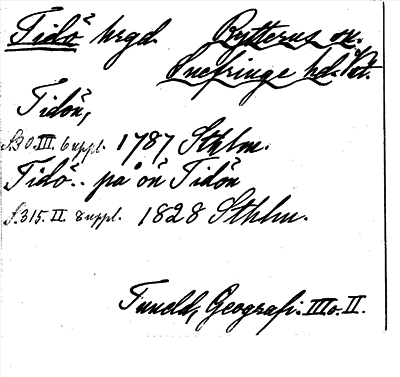 Tidö hrgd. Rytterns sn.
Snefringe hd. Vstm.
Tidön,
S. 30. III. 6 uppl. 1787 Sthlm.
Tidö.. på ön Tidön
S. 315. II. 8 uppl. 1828 Sthlm.
Tuneld, Geografi. III o. II.